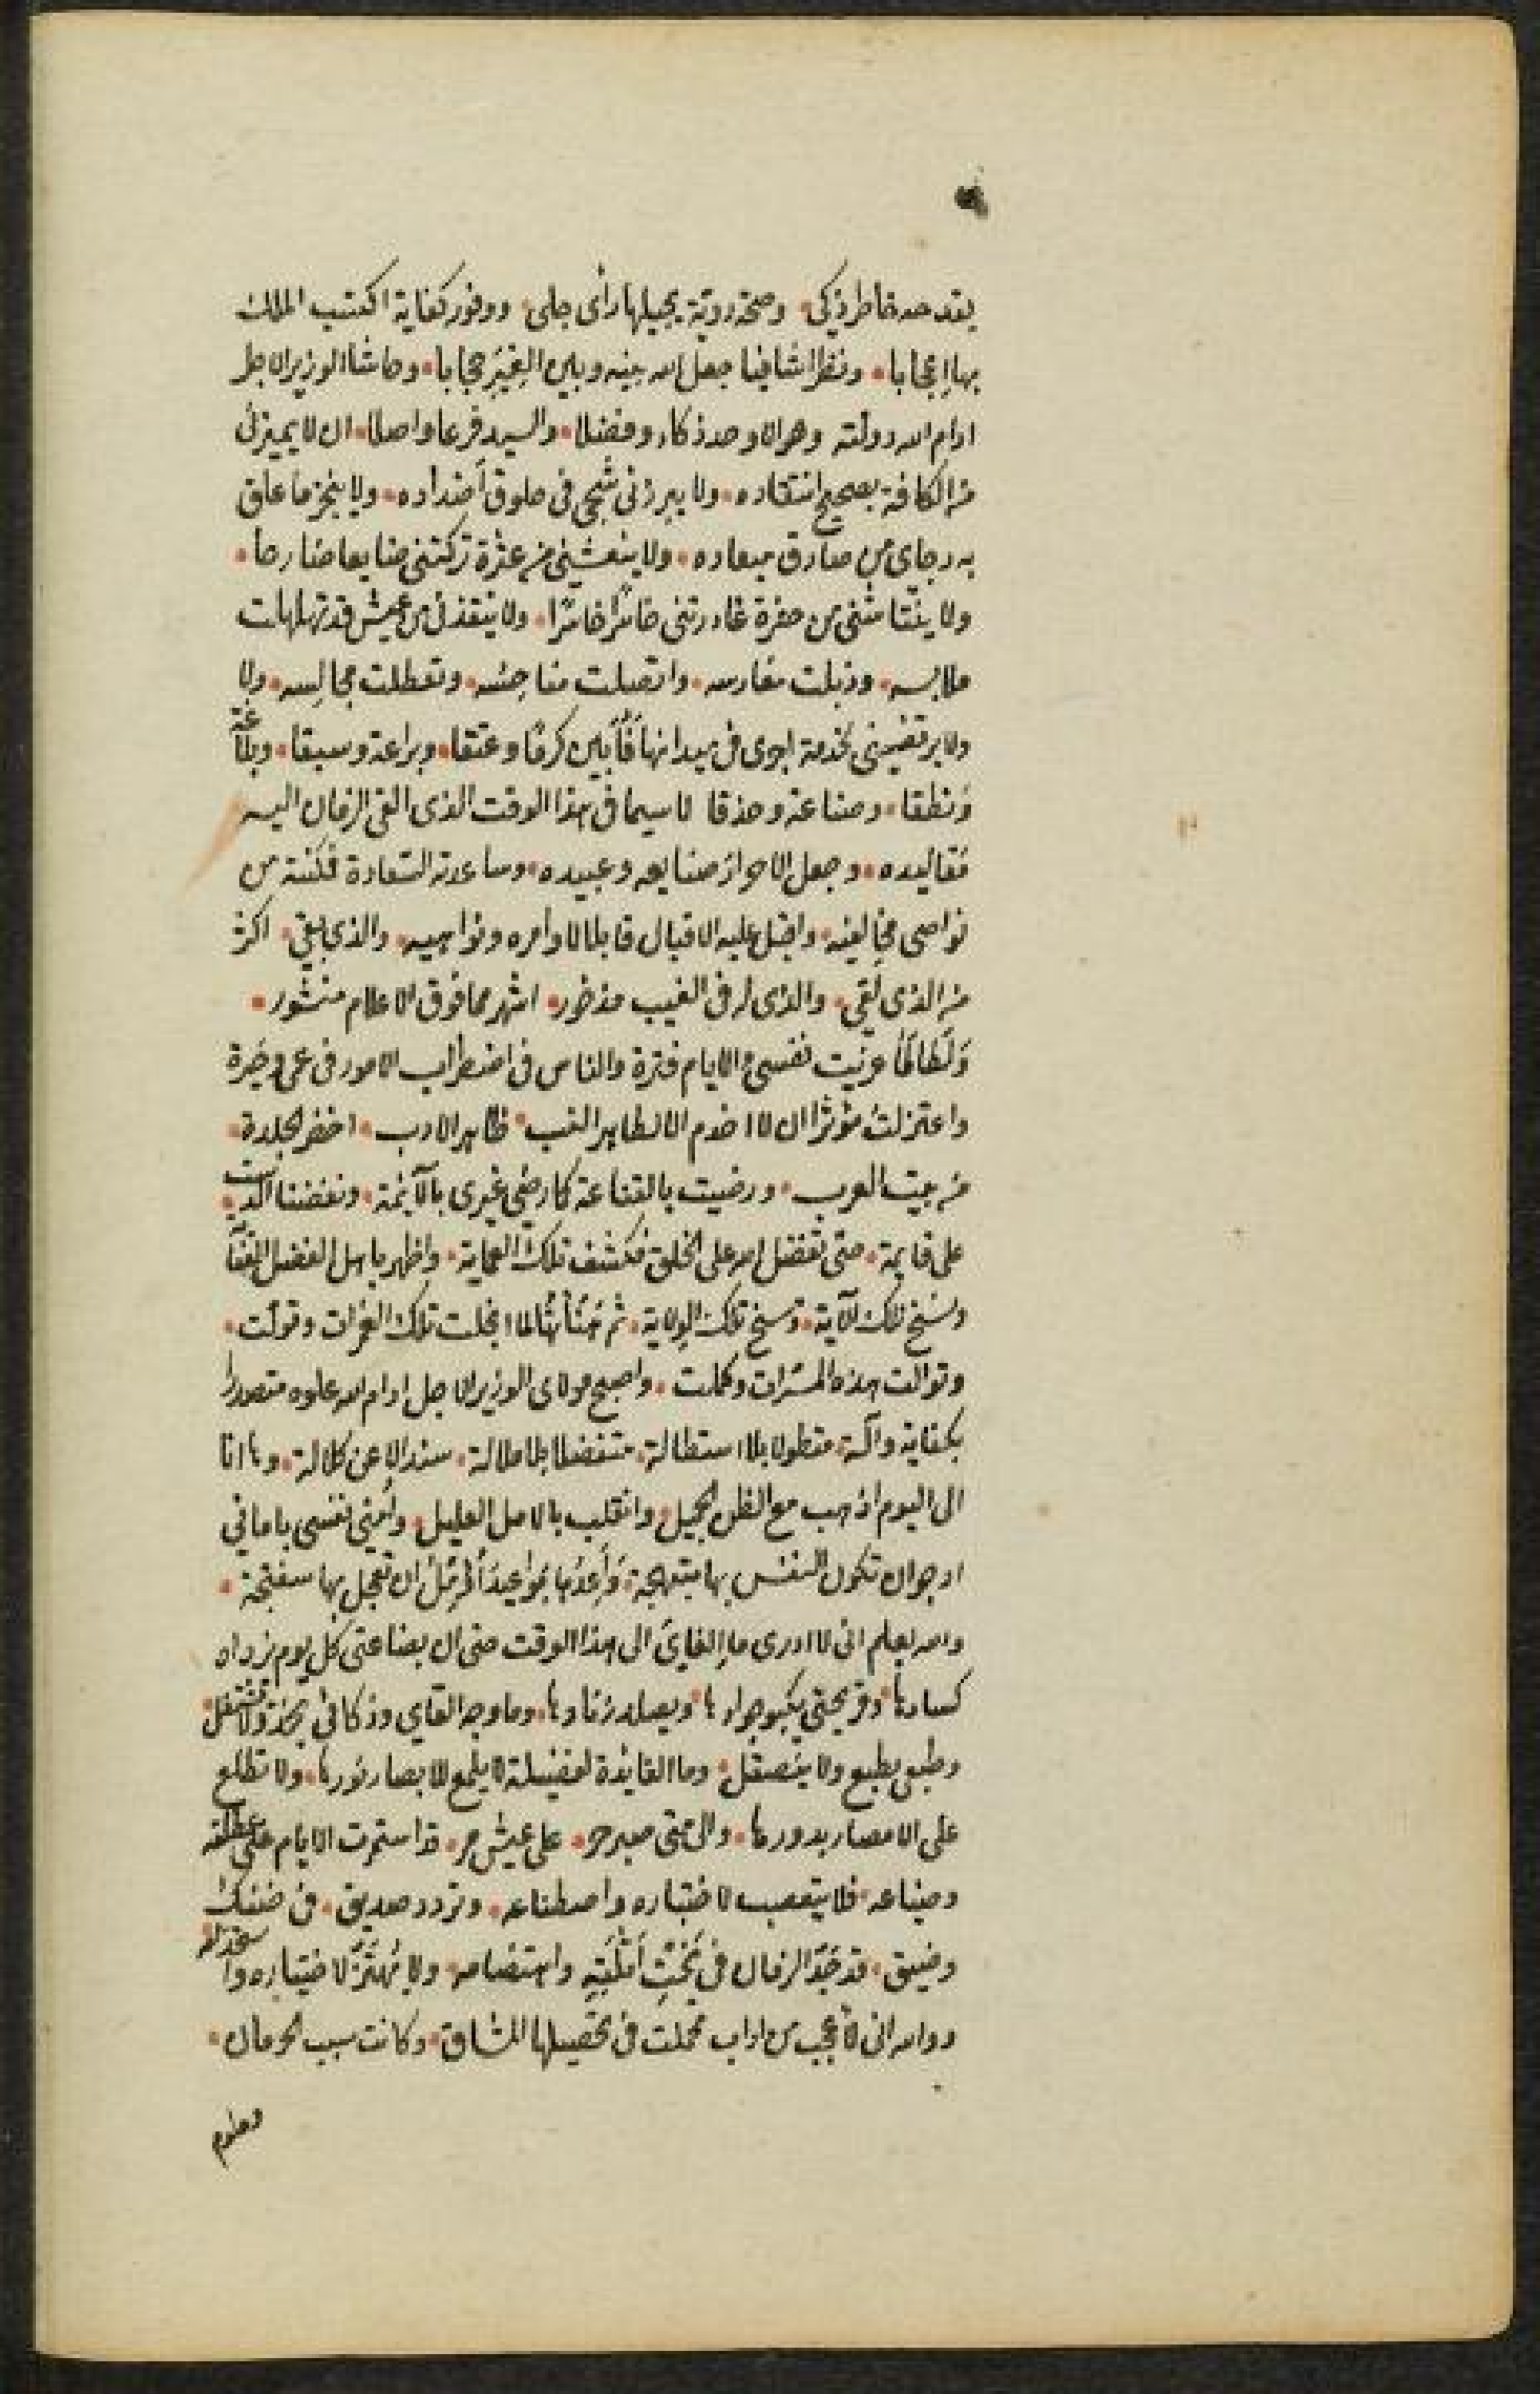 يقدحه خاطر ذكى • وصحة روية يجيلها رأى جلى • ووفور كفاية اكتسب الملك
بها اعجابا • ونظرا شافيا جعل الله بينه وبين الغير حجابا • وحاشا الوزير الاجل
ادام الله دولته وهو الاوحد ذكاء وفضلا • والسيد فرعا واصلا • ان لا يميزنى
من الكافة بصحيح انتقاده • ولا يبرزنى شجى فى حلوق أضداده • ولا ينجز ما علق
به رجاى من صادق ميعاده • ولا ينعشنى من عثرة تركتنى ضايعا ضارعا •
ولا ينتاشنى من حفرة غادرتنى خائرا خاثرا • ولا ينقذنى من عيش قد تهلهلت
ملابسه • وذبلت مغارسه • وتعطلت مجالسه • ولا
ولا يرتضينى لخدمة اجرى فى ميدانها كرما وعتقا • وبراعة وسبقا • وبلاغة
ونطقا • وصناعة وحذقا لا سيما فى هذا الوقت الذى القى الزمان اليه
مقاليده • وجعل الاحرار صنايعه وعبيده • وساعدته السعادة فمكنته من
نواصى مخالفيه • واقبل عليه الاقبال قابلا لاوامره ونواهيه • والذى بقى • اكثر
من الذى لقى • والذى له فى الغيب مذخور • اشهر مما فوق الاعلام منشور •
ولطالما عزيت نفسى والايام فترة والناس فى اضطراب الامور فى عمى وحيرة
واعتزلت مؤثرا ان لا اخدم الا لطاهر النسب • ظاهر الادب • اخضر الجلدة •
من بيت العرب • ورضيت بالقناعة كما رضى غيرى بالآيمة • ونفضنا اليد
على قايمة • حتى تفضل الله على الخلق فكشف تلك العماية • واظهر باهل الفضل
ونسخ تلك الآية • وتسخ تلك الولاية • ثم هنأتها لما انجلت تلك الغمرات وتولت •
وتوالت هذه المسرات وكملت • واصبح مولاى الوزير الاجل ادام الله علوه متصدرا
بكفاية وآلة • متطولا بلا استطالة • متفضلا بلا ملالة • سندا لا عن كلالة • وها انا
الى اليوم اذهب مع الظن الجميل • وانقلب بالامل العليل • وأمنى نفسى بامانى
ارجو ان تكون النفس بها مبتهجة • وأعدها مواعيد أؤمل ان تعجل بها سفتجة •
والله يعلم انى لا ادرى ما الغاى الى هذا الوقت حتى ان بضاعتى كل يوم يزداد
كسادها • وقريحتى يكبو جوادها • ويصلد زنادها • وما وجه القاى وذكائى
وطبعى يطبع ولا ينصقل • وما الفائدة لفضيلة لا يلمع للابصار نورها • ولا تطلع
على الامصار بدورها • والى متى صبر حر • على عيش مر • قد استمرت الايام على عطلته
وضياعه • فلا يتعصب لاختياره واصطناعه • وتردد صديق • فى ضنك
وضيق • قد جد الزمان فى نحت أثلته واهتضامه • ولا يهتز لاختياره واستخدامه
ووالله انى لأعجب من اداب تحملت فى تحصيلها المشاق • وكانت سبب الحرمان •
وعلوم